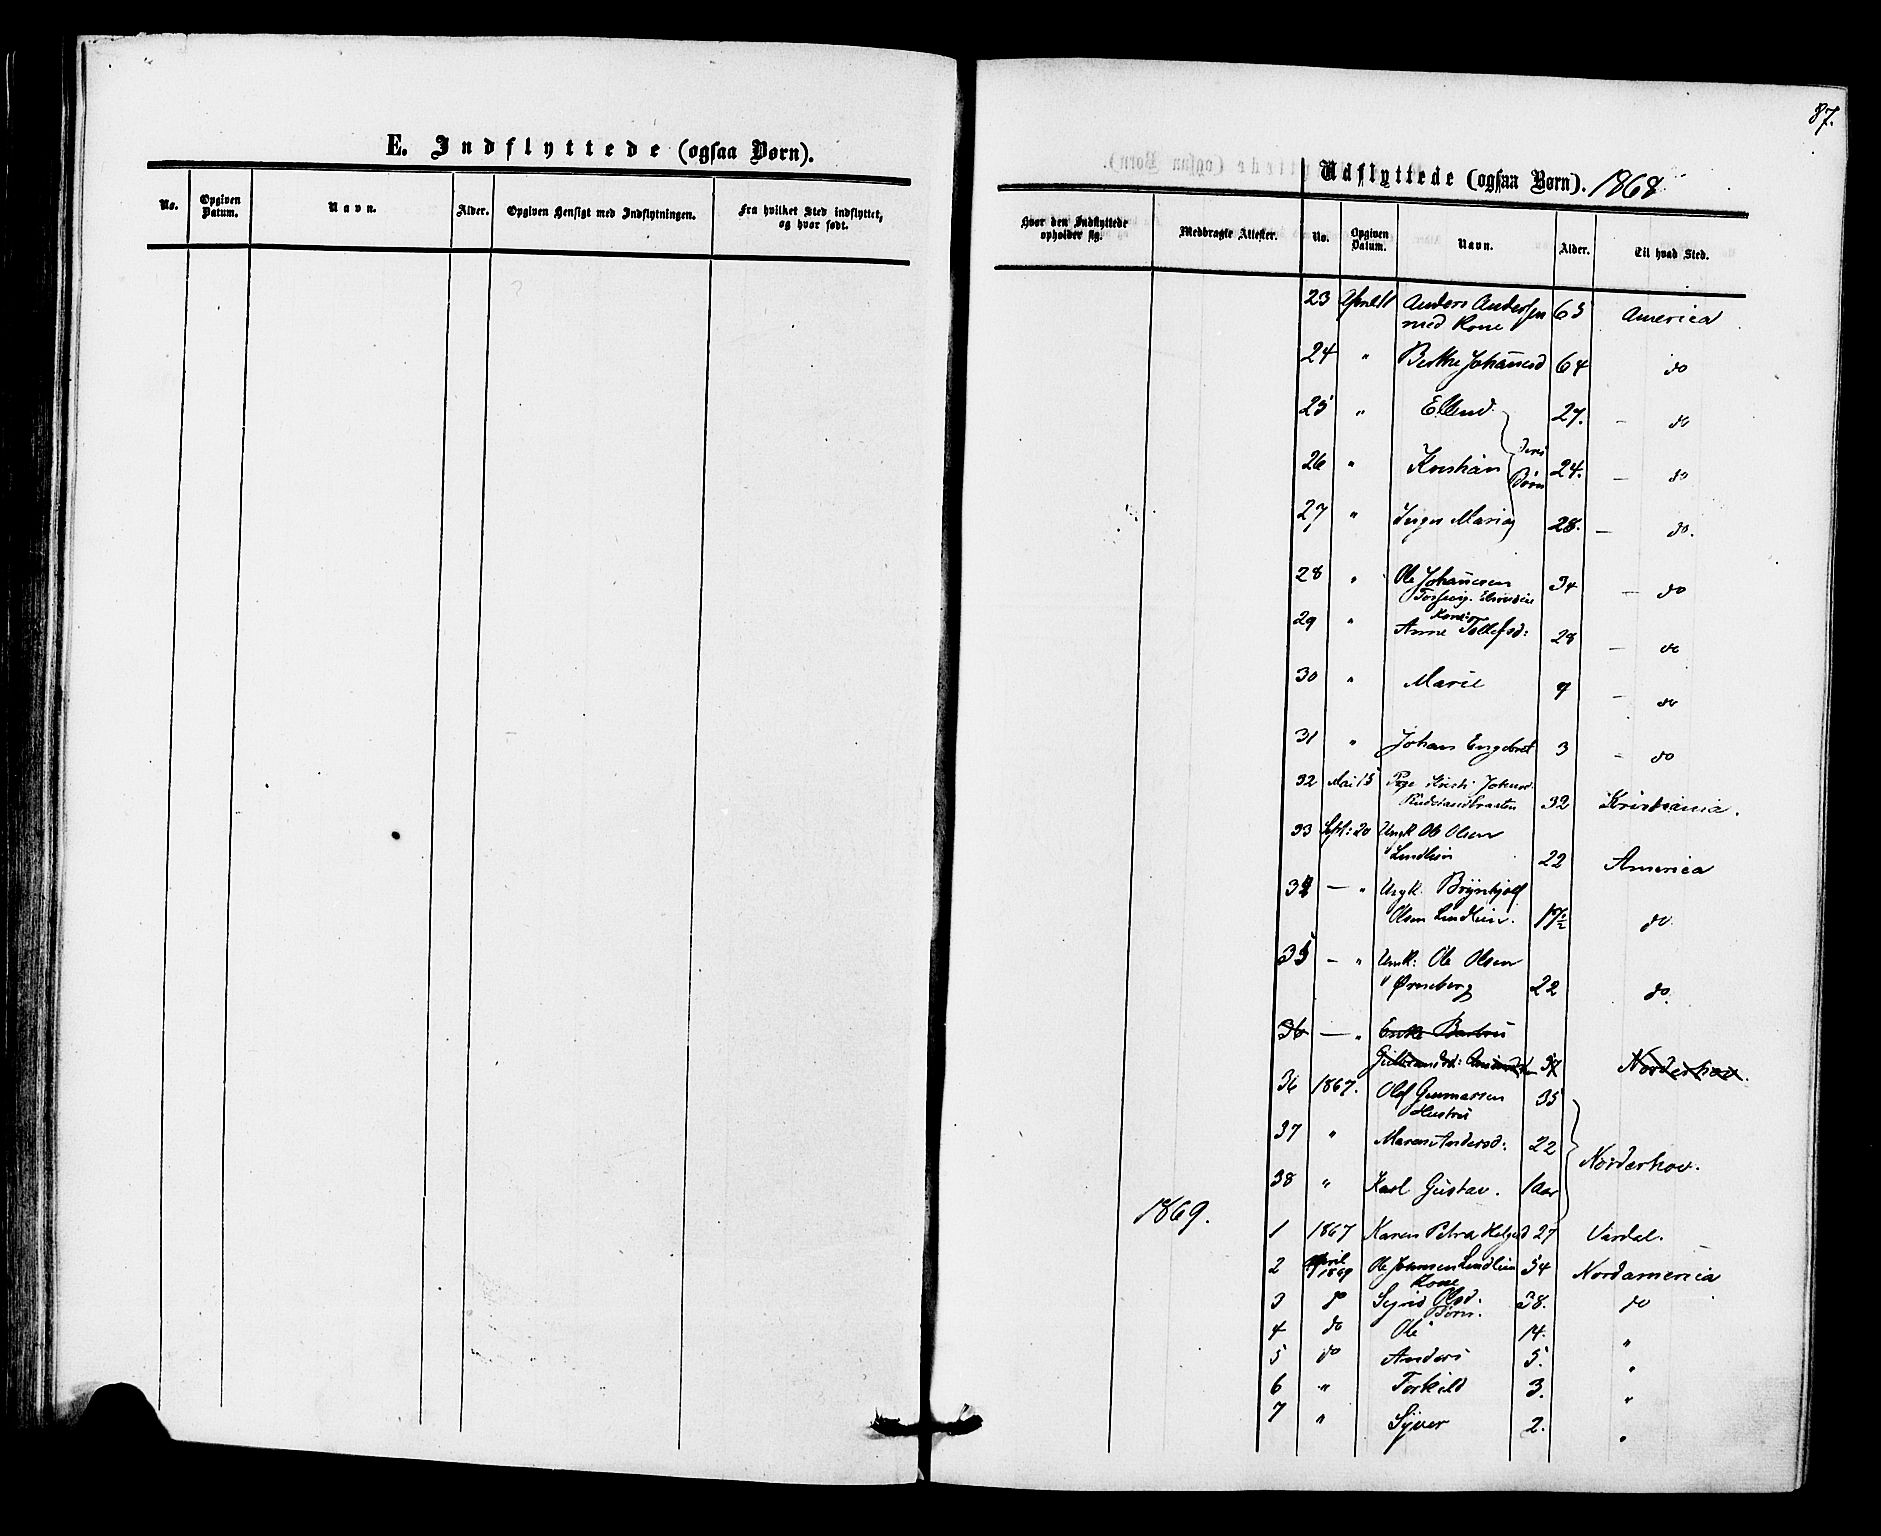 87.
E. Indflyttede (ogsaa Børn).
No. Opgiven Datum. Navn. Alder. Opgiven Hensigt med Indflytningen. Fra hvilket Sted indflyttet, og hvor født.
Udflyttede (ogsaa Børn). 1868
Hvor den Indflyttede opholder sig. Medbragte Attester. No. Opgiven Datum. Navn. Alder. Til hvad Sted.
23 Anders Andersen 65 America
med Kone
24 " Berthe Johannesd 64 do
25 " Ellend 27. - do
deres
26 " Kristian 24. - do
Børn
27 " Inger Maria 28. - do.
28 " Ole Johannesen 34 - do
Kone
29 " Anne Tollefsd: 28 - do
30 " Marie 9 - do
31 " Johan Engebret 3 - do
32 Mai 15 Pige Kristi Johansd. 32 Kristiania.
33 Sept: 20 Ungk. Ole Olsen
Lindlien 22 America
34 - " Ungk. Brynhjolf
Olsen Lindlien. 17 1/2 do.
35 - " Ungk: Ole Olsen
Ørneberg 22 do.
36 - " Enke Berthe
Norderhov.
36 1867. Olof Gunnarsen 35
Hustru
37 " Maren Andersd: 22
Norderhov.
38 " Karl Gustav. 1 Aar
1869.
1 1867 Karen Petra Helgesd 27 Vardal.
2 April 1869 Ole Johnsen Lindlien 54 Nordamerica
Kone
3 do Sigrid Olsd. 38. do
Børn.
4 do Ole 14. "
5 do Anders 5. "
6 " Torkild 3. "
7 " Syver 2. "